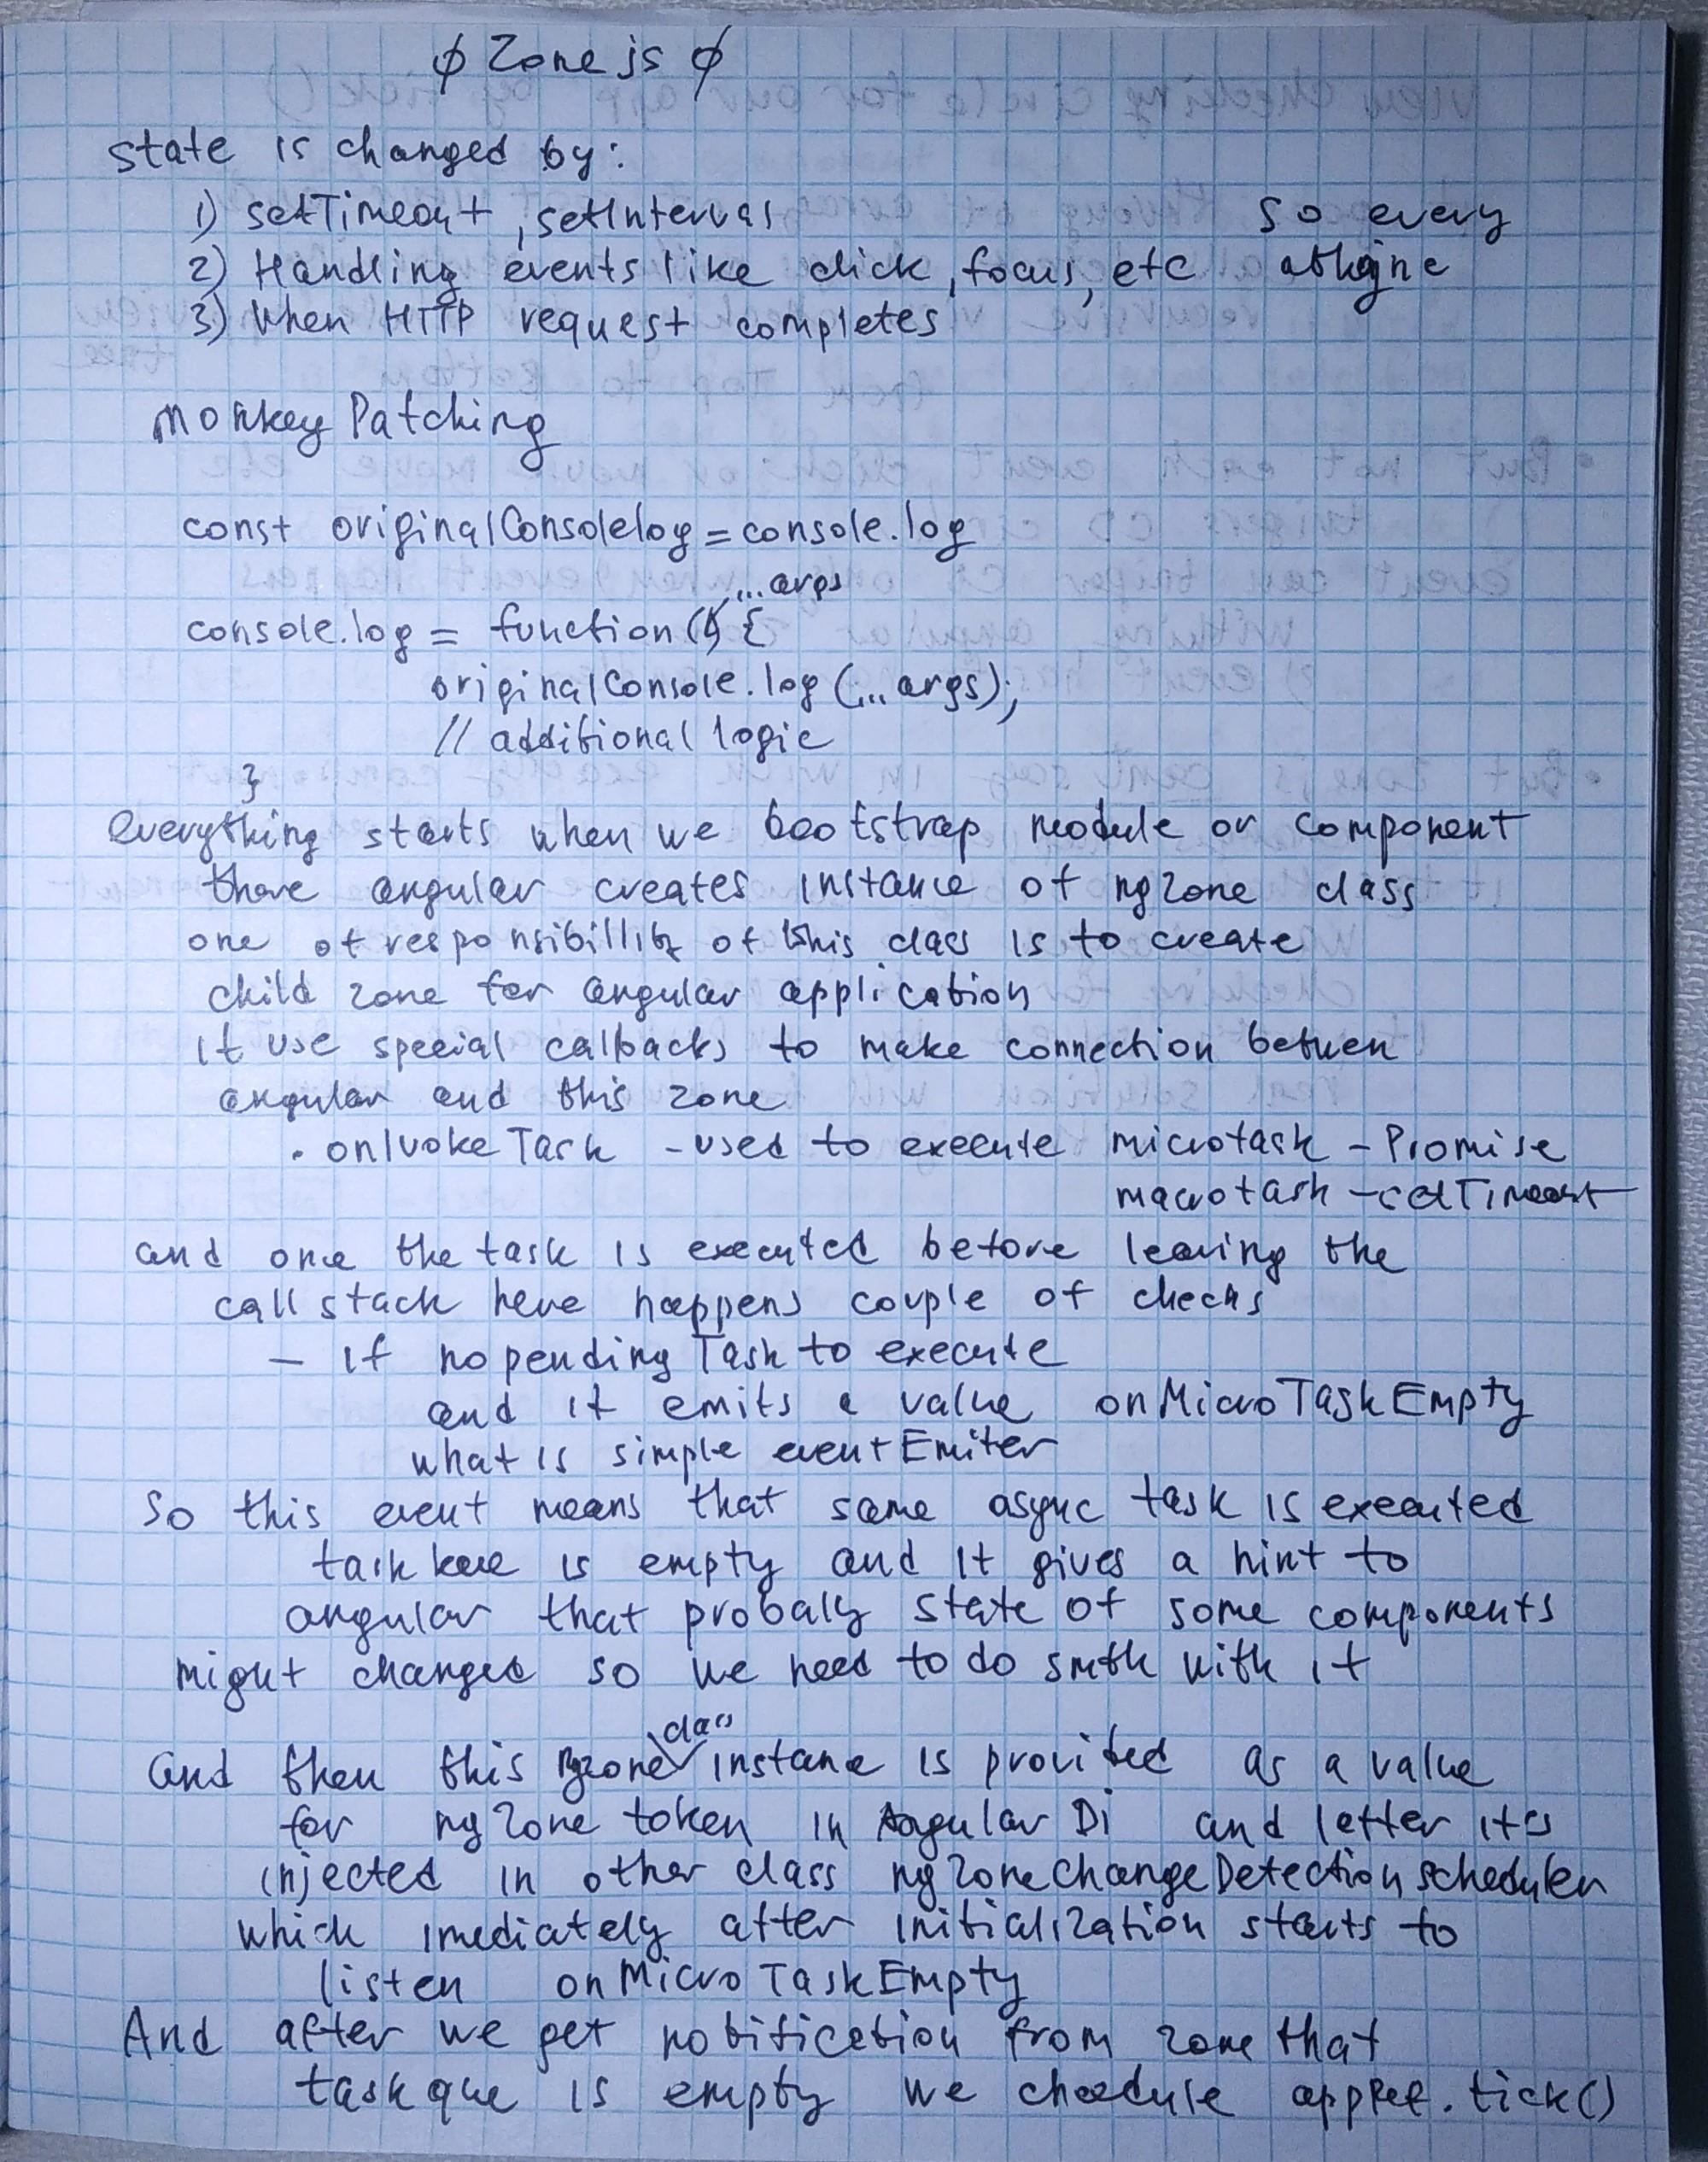 ϕ Zone js ϕ
state is changed by:
1) setTimeout, setInterval
So every
2) Handling events like click, focus, etc
3) When HTTP request completes
Monkey Patching
const originalConsolelog = console.log
...args
console.log = function () {
originalConsole.log (... args);
// additional logic
}
everything starts when we bootstrap module or component
there angular creates instance of ngZone class
one of responsibillity of this class is to create
child zone for angular application
it use special callbacks to make connection betwen
angular and this zone
• onIvoke Task - used to execute microtask - Promise
macrotask - setTimeout
and once the task is executed before leaving the
call stack here happens couple of checks
- if no pending Task to execute
and it emits a value onMicroTaskEmpty
what is simple eventEmiter
So this event means that some async task is executed
task is empty and it gives a hint to
angular that probaly state of some components
might changed so we need to do smth with it
class
and then this ngzone instance is provided as a value
for ngZone token in Angular Di and letter its
injected in other class ngZoneChangeDetectionScheduler
which imediately after initialization starts to
listen onMicroTaskEmpty
And after we get notification from zone that
task que is empty we appRef.tick()